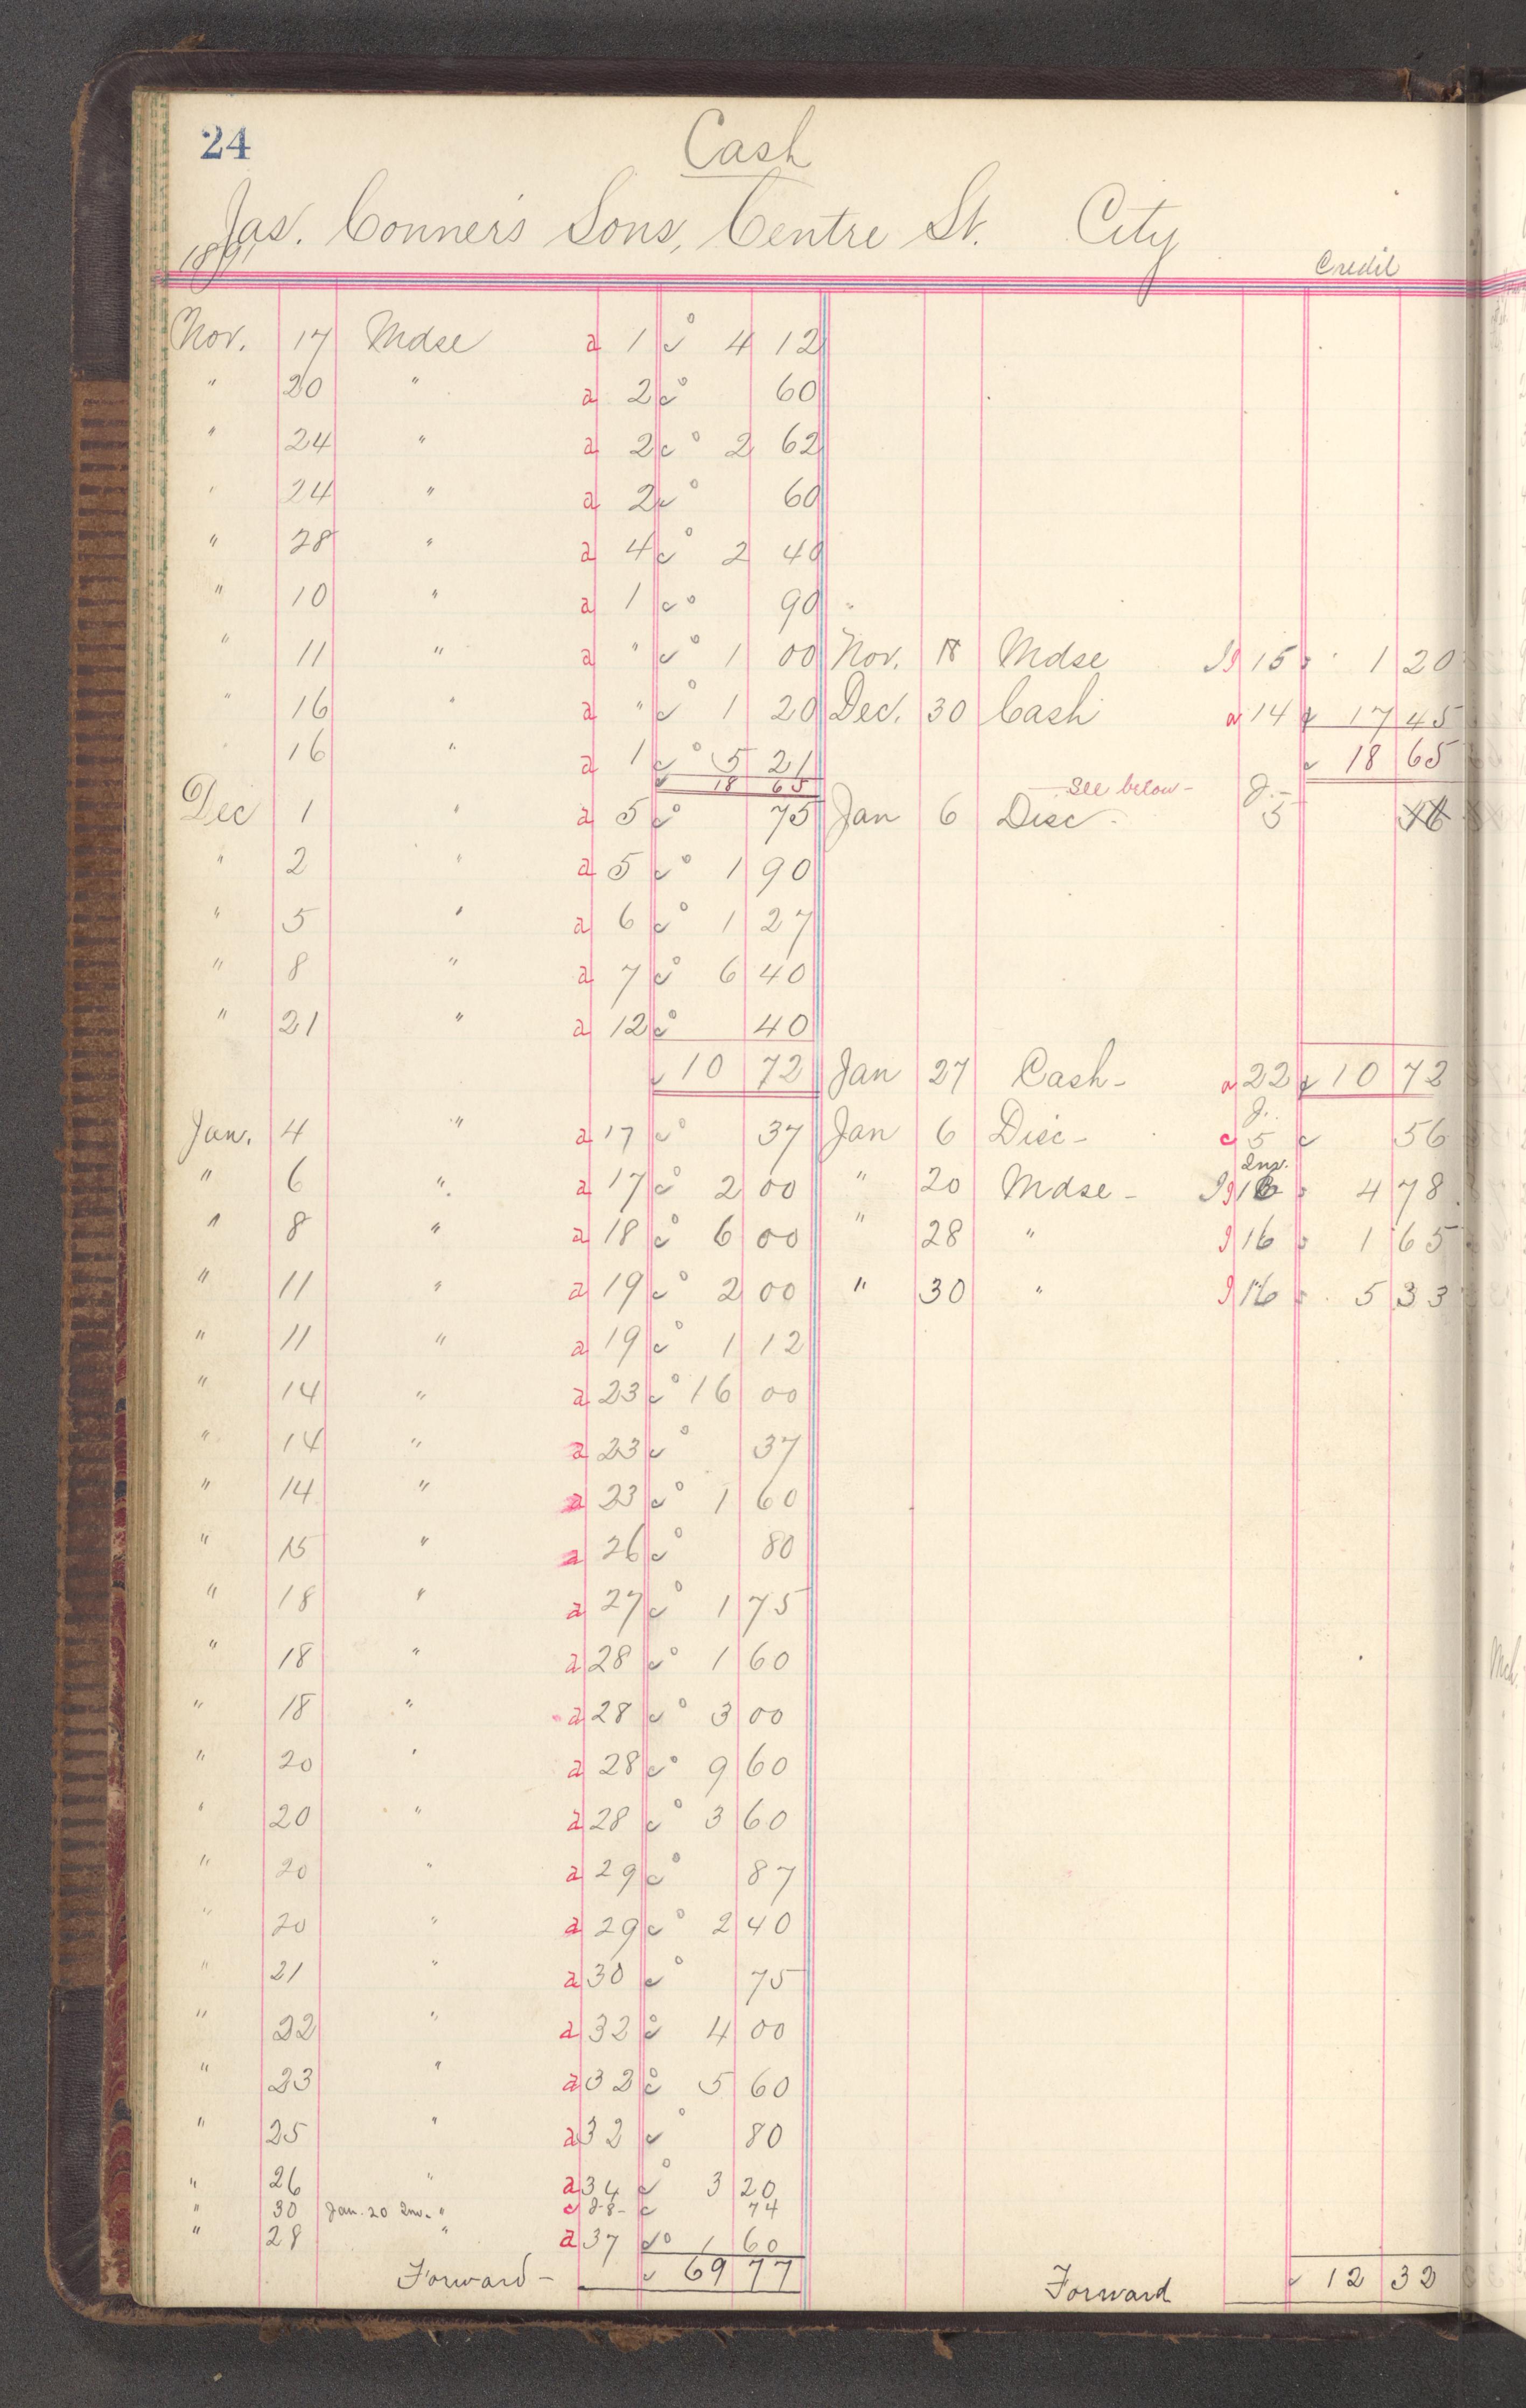 24
Cash
Jas. Conner's Sons, Centre St. City
1891
Credit
Nov. 17 Mdse a 1 4 12
" 20 " a 2 60
" 24 " a 2 2 62
" 24 " a 2 60
" 28 " a 4 2 40
" 10 " a 1 90
" 11 " a " 1 00 Nov. 18 Mdse 15 1 20
" 16 " a " 1 20 Dec. 30 Cash a 14 17 45
" 16 " a 1 5 21 18 65
18 65 See below -
Dec 1 " a 5 75 Jan 6 Disc - J. 5 46
" 2 " a 5 1 90
" 5 " a 6 1 27
" 8 " a 7 6 40
" 21 " a 12 40
10 72 Jan 27 Cash - a 22 10 72
Jan. 4 " a 17 37 Jan 6 Disc - c J. 5 56
" 6 " a 17 2 00 " 20 Mdse - Inv. 16 4 78
" 8 " a 18 6 00 " 28 " 16 1 65
" 11 " a 19 2 00 " 30 " 16 5 33
" 11 " a 19 1 12
" 14 " a 23 16 00
" 14 " a 23 37
" 14 " a 23 1 60
" 15 " a 26 80
" 18 " a 27 1 75
" 18 " a 28 1 60
" 18 " a 28 3 00
" 20 " a 28 9 60
" 20 " a 28 3 60
" 20 " a 29 87
" 20 " a 29 2 40
" 21 " a 30 75
" 22 " a 32 4 00
" 23 " a 32 5 60
" 25 " a 32 80
" 26 " a 34 3 20
" 30 Jan. 20 Inv. " c J-8- 74
" 28 " a 37 1 60
Forward - 69 77 Forward 12 32
Mch